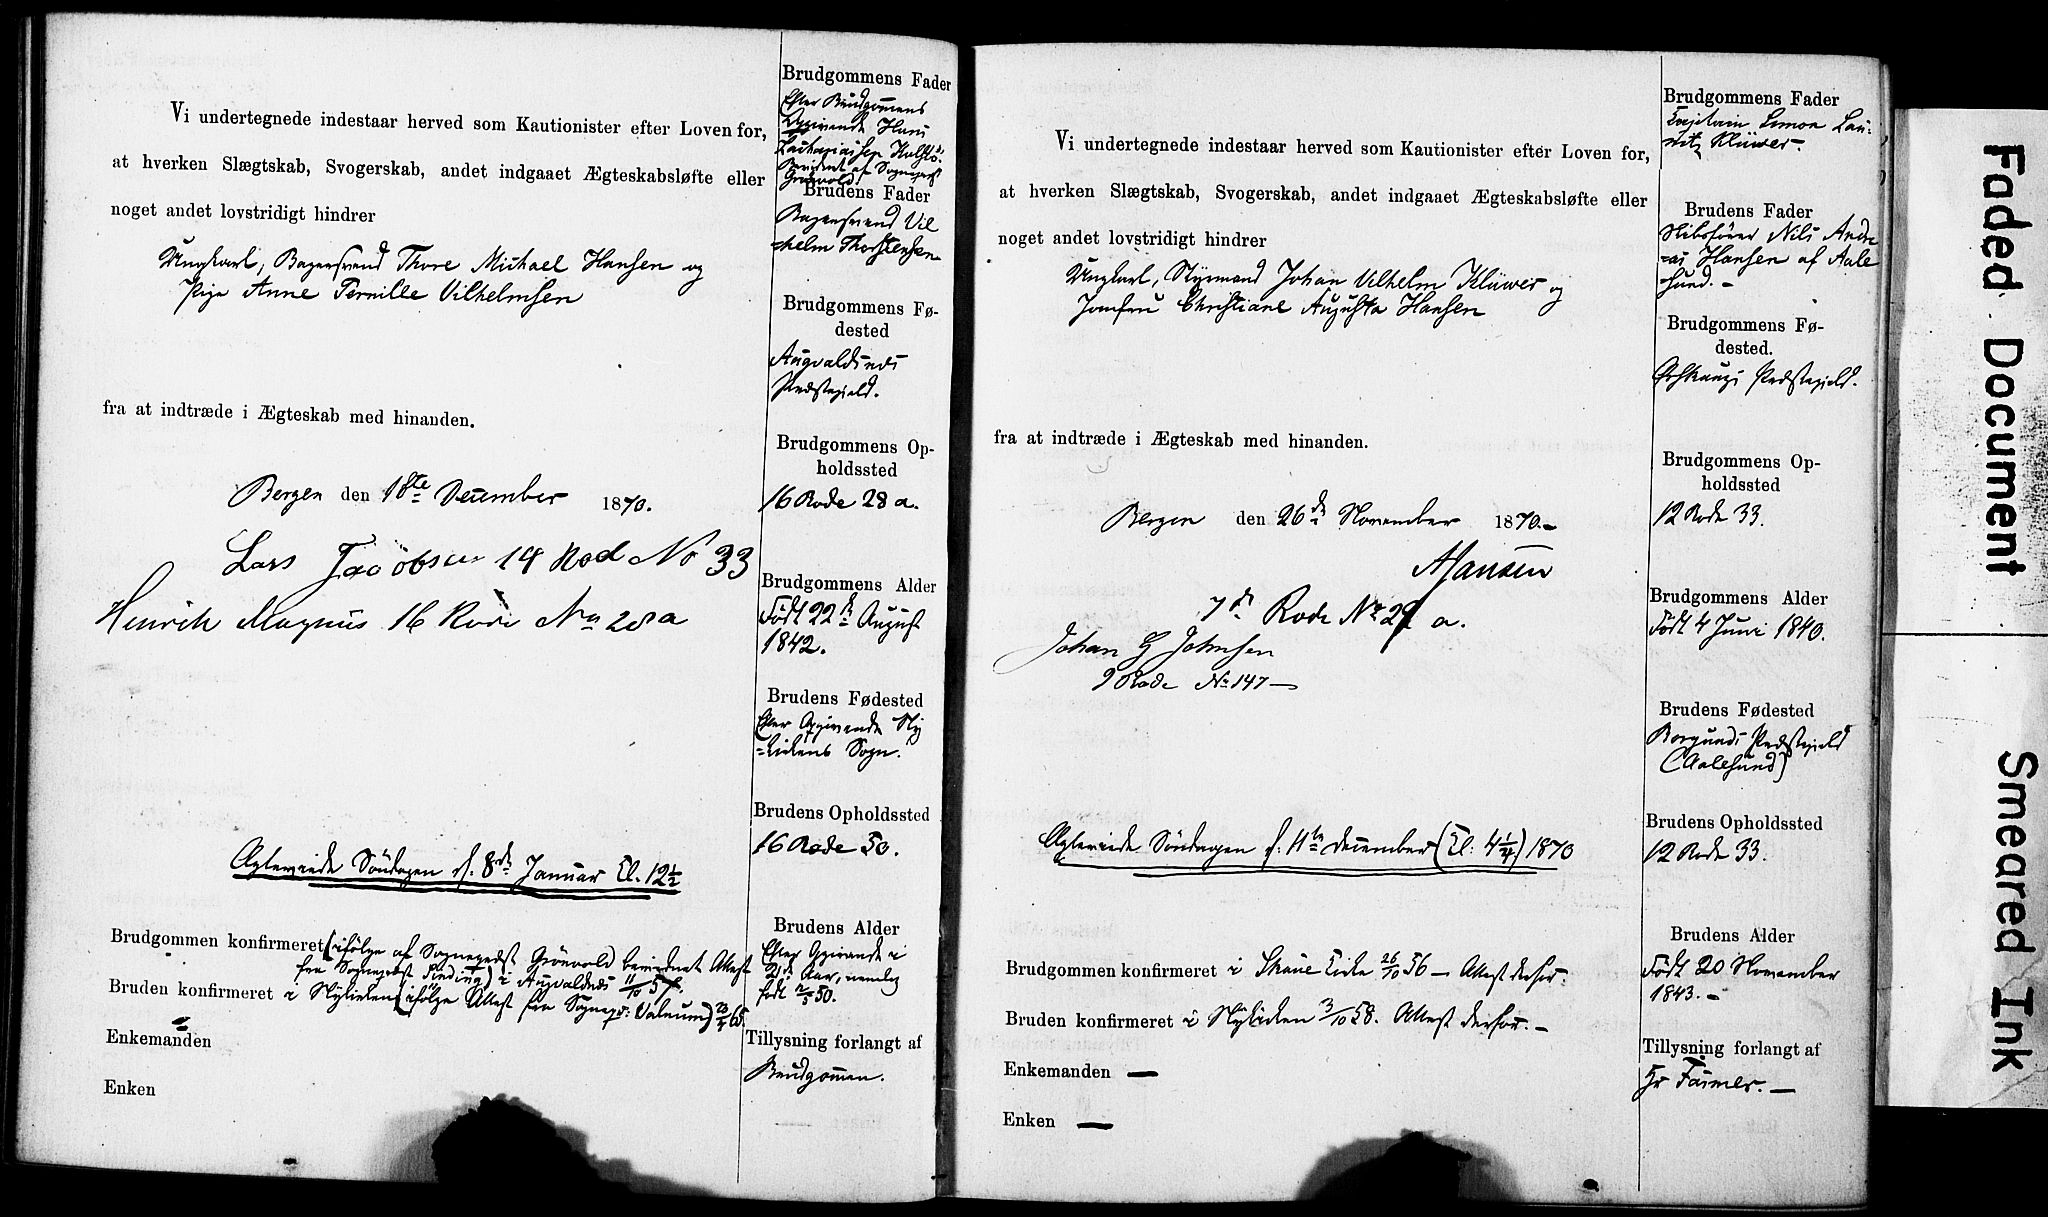 Vi undertegnede indestaar herved som Kautionister efter Loven for,
at hverken Slægtskab, Svogerskab, andet indgaaet Ægteskabsløfte eller
noget andet lovstridigt hindrer
Ungkarl, Bagersvend Thore Michael Hansen og
Pige Anne Pernille Vilhelmsen
fra at indtræde i Ægteskab med hinanden.
Bergen den 18te December 1870.
Lars Jacobsen 14 Rod No 33
Henrik Magnus 16 Rode No 28 a
Ægteviede Söndagen d. 8de Januar Kl. 12 1/2
Brudgommen konfirmeret (ifölge af Sognepræst Grönvold bevidnet Attest
fra Sogneprest Sinding) i Augvaldsnæs 11/10 57.
Bruden konfirmeret i Nykirken (ifölge Attest fra Sognepr: Valeum) 23/4 65
Enkemanden
Enken
Brudgommens Fader
Efter Brudgommens
Opgivende Hans
Zachariassen
Bevidnet af Sogneprest
Grönvold
Brudens Fader
Bagersvend Vil
=helm Thorstensen
Brudgommens Fø-
dested
Augvaldsnæs
Præstegield.
Brudgommens Op-
holdssted
16 Rode 28 a.
Brudgommens Alder
Födt 22de August
1842.
Brudens Fødested
Efter Opgivende Ny
=kirkens Sogn.
Brudens Opholdssted
16 Rode 50.
Brudens Alder
Efter Opgivende i
21de Aar, nemlig
født 2/5 50.
Tillysning forlangt af
Brudgommen.
Vi undertegnede indestaar herved som Kautionister efter Loven for,
at hverken Slægtskab, Svogerskab, andet indgaaet Ægteskabsløfte eller
noget andet lovstridigt hindrer
Ungkarl, Styrmand Johan Vilhelm Klüwer og
Jomfru Christiane Augusta Hansen
fra at indtræde i Ægteskab med hinanden.
Bergen den 26de November 1870.-
AHansen
7de Rode No 29 a.
Johan G Johnsen
9 Rode No 147 -
Ægteviede Söndagen d. 11te December (Kl: 4 1/4) 1870
Brudgommen konfirmeret i Skauekirke 26/10 56 - Attest derfor.
Bruden konfirmeret i Nykirken 3/10 58. Attest derfor. -
Enkemanden -
Enken -
Brudgommens Fader
Captain Simon Lau-
ritz Klüwer.
Brudens Fader
Skibsfører Nils Andre
=as Hansen af Aale
sund. -
Brudgommens Fø-
dested.
Præstegield.
Brudgommens Op-
holdssted
12 Rode 33.
Brudgommens Alder
Födt 4 Juni 1840.
Brudens Fødested
Borgunds Præstegield
(Aalesund)
Brudens Opholdssted
12 Rode 33.
Brudens Alder
Födt 20 November
1843. -
Tillysning forlangt af
Hr -
Faded Document
Smeared Ink